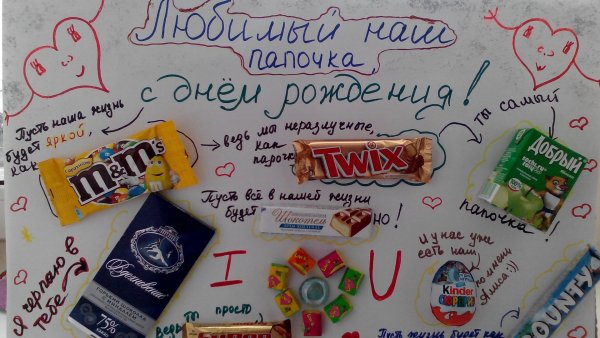 Любимый наш
папочка,
с днём рождения!
Пусть наша жизнь
будет яркой,
как
m&m's
ведь мы неразлучные,
как
парочка
TWIX
ты самый
Добрый
папочка!
Пусть всё в нашей жизни
будет
но!
Я черпаю в
тебе
Вдохновение
ГОРЬКИЙ ШОКОЛАД
75%
I
U
И у нас уже
есть наш
Kinder
СЮРПРИЗ
по имени
Алиса :))
ведь ты просто
Пусть жизнь будет как
BOUNTY